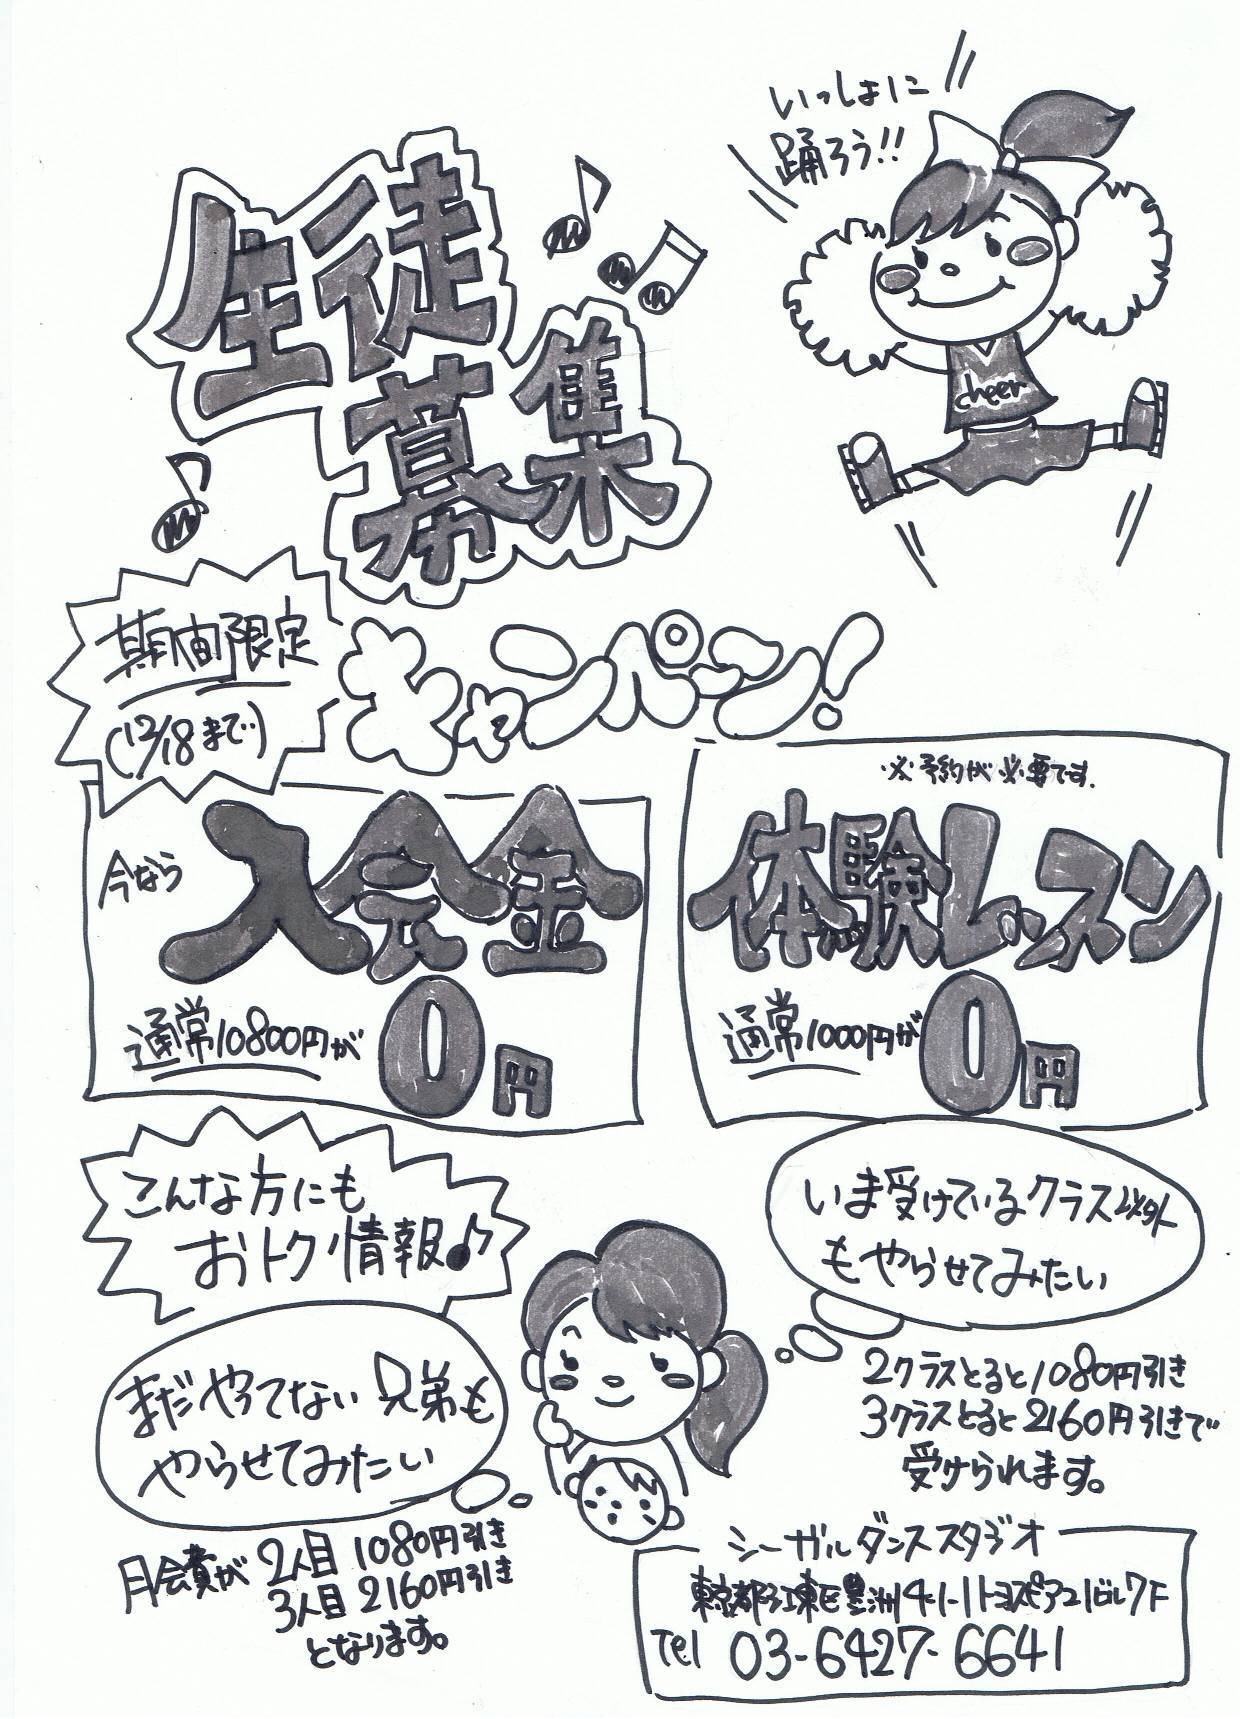 いっしょに
踊ろう!!
生徒
募集
cheer
期間限定
(12/18まで)
キャンペーン!
今なら
入会金
通常10800円が 0円
※予約が必要です.
体験レッスン
通常1000円が 0円
こんな方にも
おトク情報♪
いま受けているクラス以外
もやらせてみたい
2クラスとると1080円引き
3クラスとると2160円引きで
受けられます。
まだやってない兄弟も
やらせてみたい
月会費が 2人目 1080円引き
3人目 2160円引き
となります。
シーガルダンススタジオ
東京都江東区豊洲4-1-1トヨスピア21ビル7F
Tel 03-6427-6641